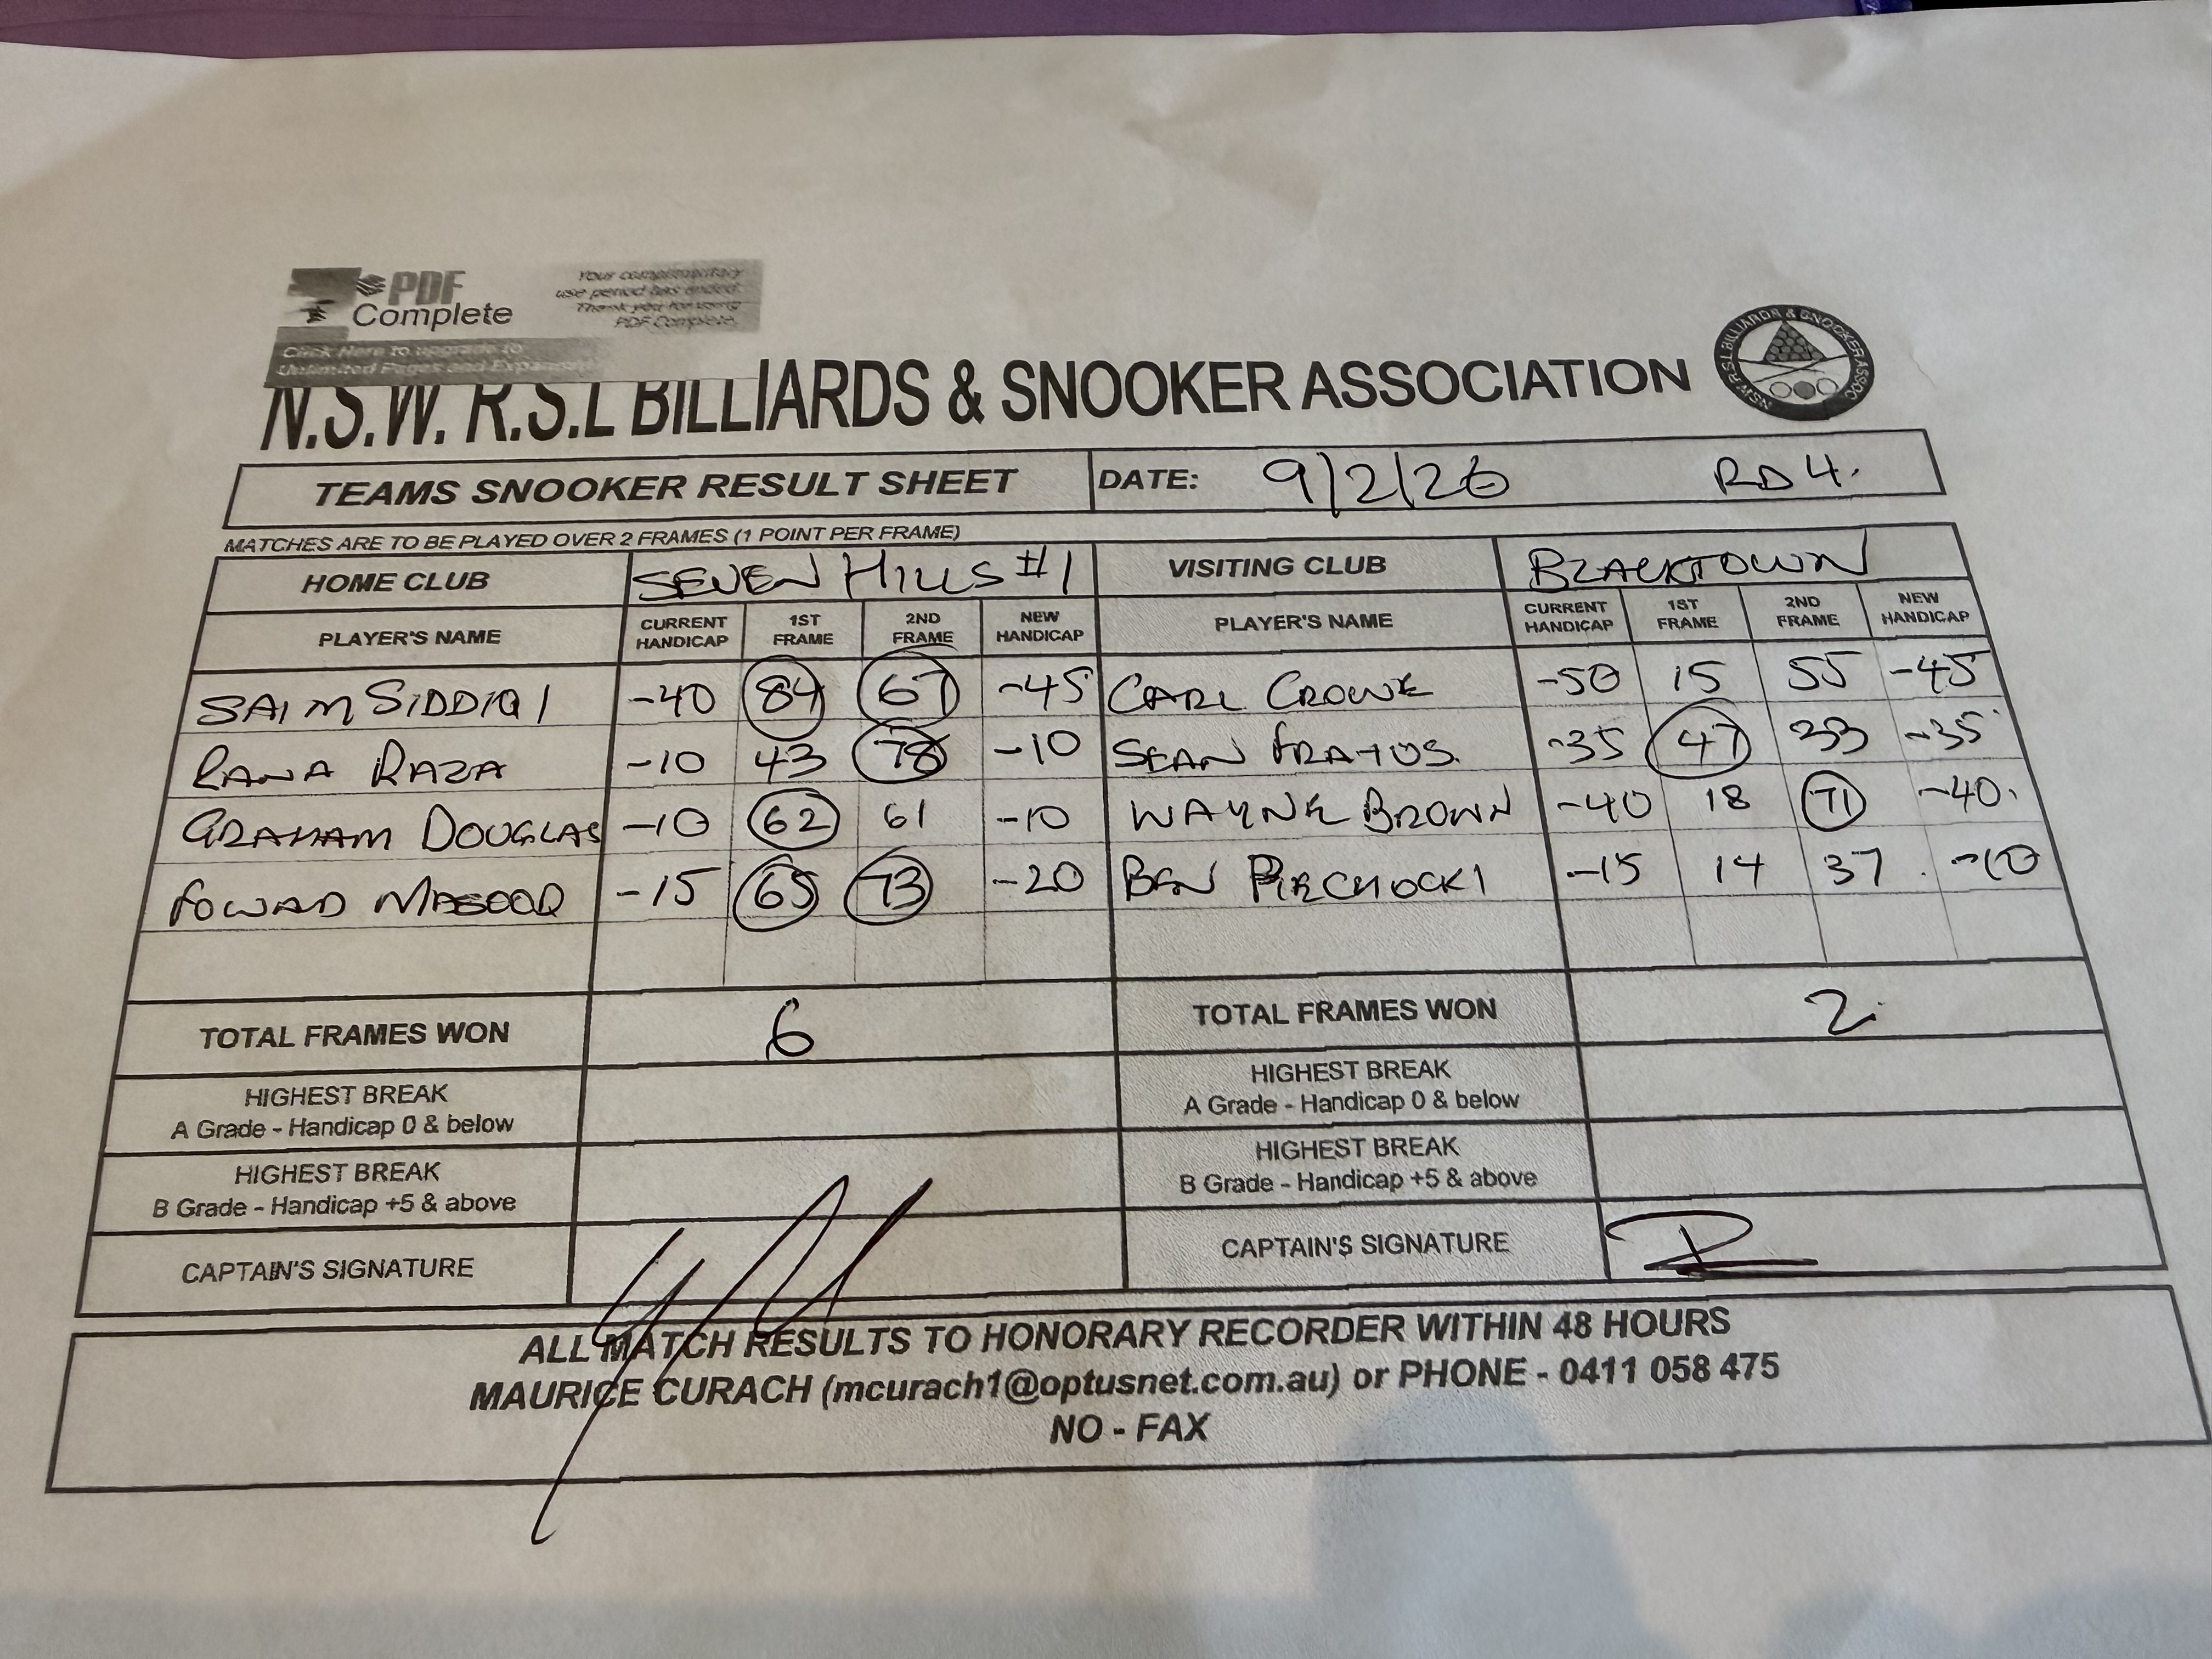 PDF
Complete
Your complimentary
use period has ended.
Thank you for using
PDF Complete.
Click Here to upgrade to
Unlimited Pages and Expanded
N.S.W. R.S.L BILLIARDS & SNOOKER ASSOCIATION
NSW R.S.L BILLIARDS & SNOOKER ASSOC.
TEAMS SNOOKER RESULT SHEET DATE: 9/2/26 RD 4.
MATCHES ARE TO BE PLAYED OVER 2 FRAMES (1 POINT PER FRAME)
HOME CLUB SEVEN HILLS #1 VISITING CLUB BLACKTOWN
PLAYER'S NAME CURRENT HANDICAP 1ST FRAME 2ND FRAME NEW HANDICAP PLAYER'S NAME CURRENT HANDICAP 1ST FRAME 2ND FRAME NEW HANDICAP
SAIM SIDDIQI -40 84 67 -45 CARL CROWE -50 15 55 -45
RANA RAZA -10 43 78 -10 SEAN FRATUS. -35 47 33 -35
GRAHAM DOUGLAS -10 62 61 -10 WAYNE BROWN -40 18 71 -40.
FOWAD MASOOD -15 65 73 -20 BEN PIRCHOCKI -15 14 37 -10
TOTAL FRAMES WON 6 TOTAL FRAMES WON 2
HIGHEST BREAK HIGHEST BREAK
A Grade - Handicap 0 & below A Grade - Handicap 0 & below
HIGHEST BREAK HIGHEST BREAK
B Grade - Handicap +5 & above B Grade - Handicap +5 & above
CAPTAIN'S SIGNATURE CAPTAIN'S SIGNATURE
ALL MATCH RESULTS TO HONORARY RECORDER WITHIN 48 HOURS
MAURICE CURACH (mcurach1@optusnet.com.au) or PHONE - 0411 058 475
NO - FAX